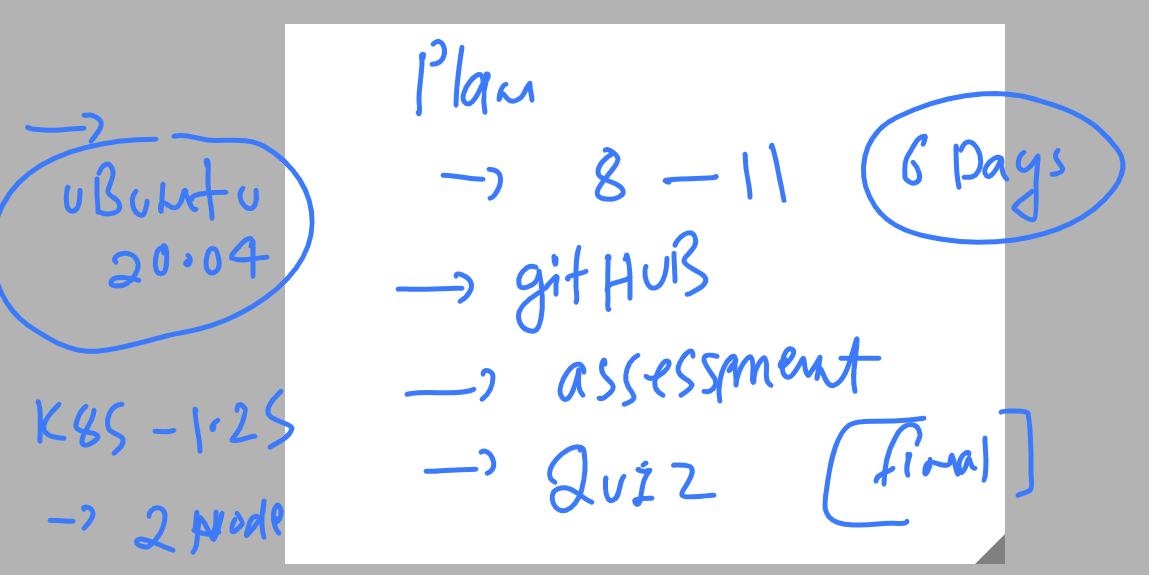 Plan
→ 8 – 11
6 Days
→ gitHuB
→ assessment
→ Quiz
[final]
→
uBuntu
20.04
K8S – 1.25
→ 2 Node